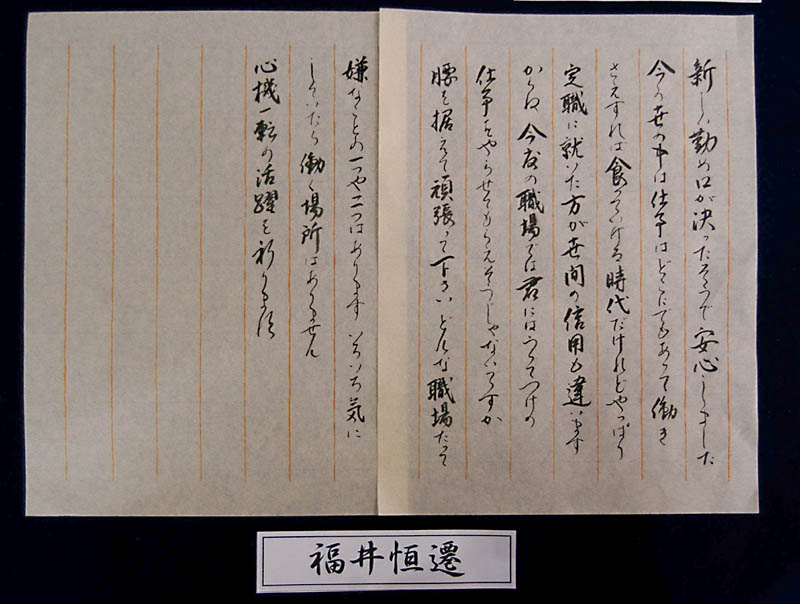 新しい勤め口が決ったそうで安心しました
今の世の中は仕事はどこにでもあって働き
さえすれば食っていける時代だけれどやっぱり
定職に就いた方が世間の信用も違います
からね 今度の職場では君にはうってつけの
仕事をやらせてもらえそうじゃないですか
腰を据えて頑張って下さい どんな職場だって
嫌なことの一つや二つはあります いちいち気に
していたら働く場所はありません
心機一転の活躍を祈ります
福井恒遷